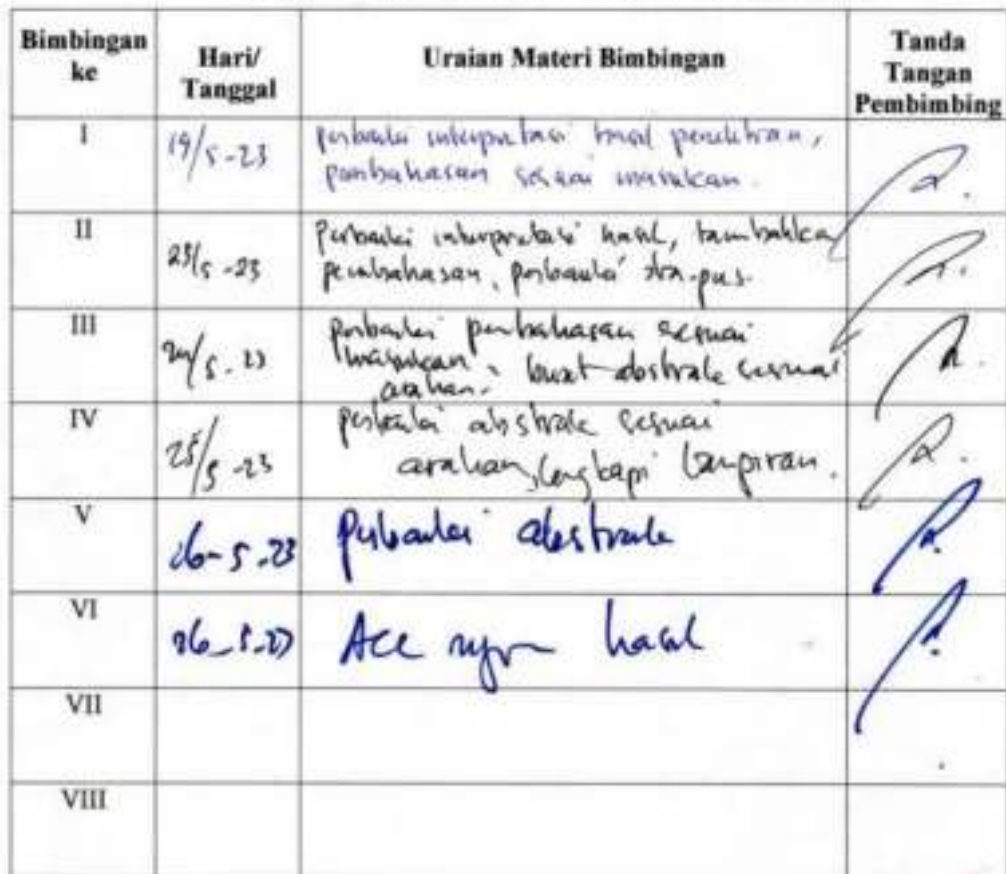 Bimbingan ke
Hari/ Tanggal
Uraian Materi Bimbingan
Tanda Tangan Pembimbing
I
19/5-23
perbaiki interpretasi hasil penelitian,
pembahasan sesuai masukan.
II
23/5-23
Perbaiki interpretasi hasil, tambahkan
pembahasan, perbaiki
III
24/5-23
perbaiki pembahasan sesuai
masukan, buat abstrak sesuai
arahan.
IV
25/5-23
perbaiki abstrak sesuai
arahan, lengkapi lampiran.
V
26-5-23
perbaiki abstrak
VI
26-5-23
Acc hasil
VII
VIII